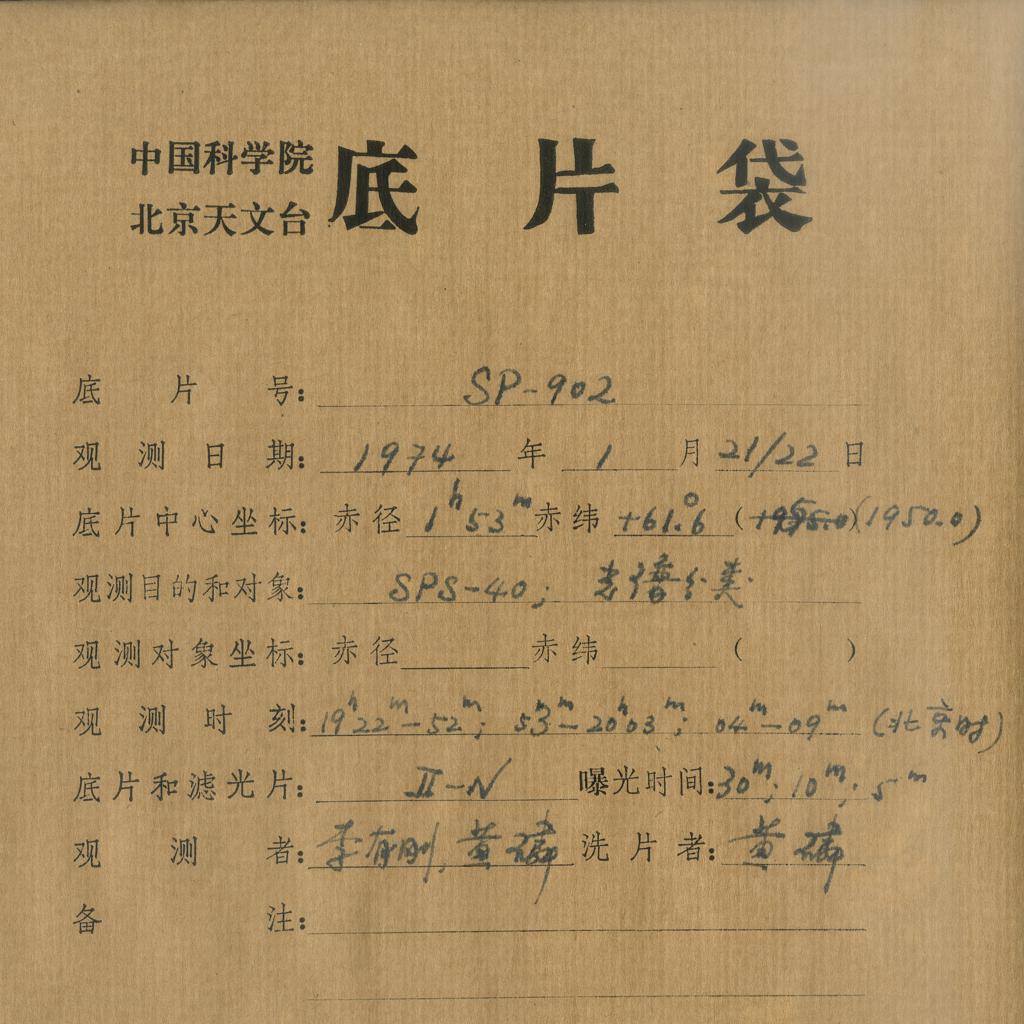 中国科学院
北京天文台 底片袋
底片号: SP-902
观测日期: 1974 年 1 月 21/22 日
底片中心坐标: 赤径 1ʰ53ᵐ 赤纬 +61.°6 ( ) (1950.0)
观测目的和对象: SPS-40; 光谱分类
观测对象坐标: 赤径 赤纬 ( )
观测时刻: 19ʰ22ᵐ-52ᵐ; 53ᵐ-20ʰ03ᵐ; 04ᵐ-09ᵐ (北京时)
底片和滤光片: II-N 曝光时间: 30ᵐ; 10ᵐ; 5ᵐ
观测者: 李有刚, 黄磷 洗片者: 黄磷
备注: